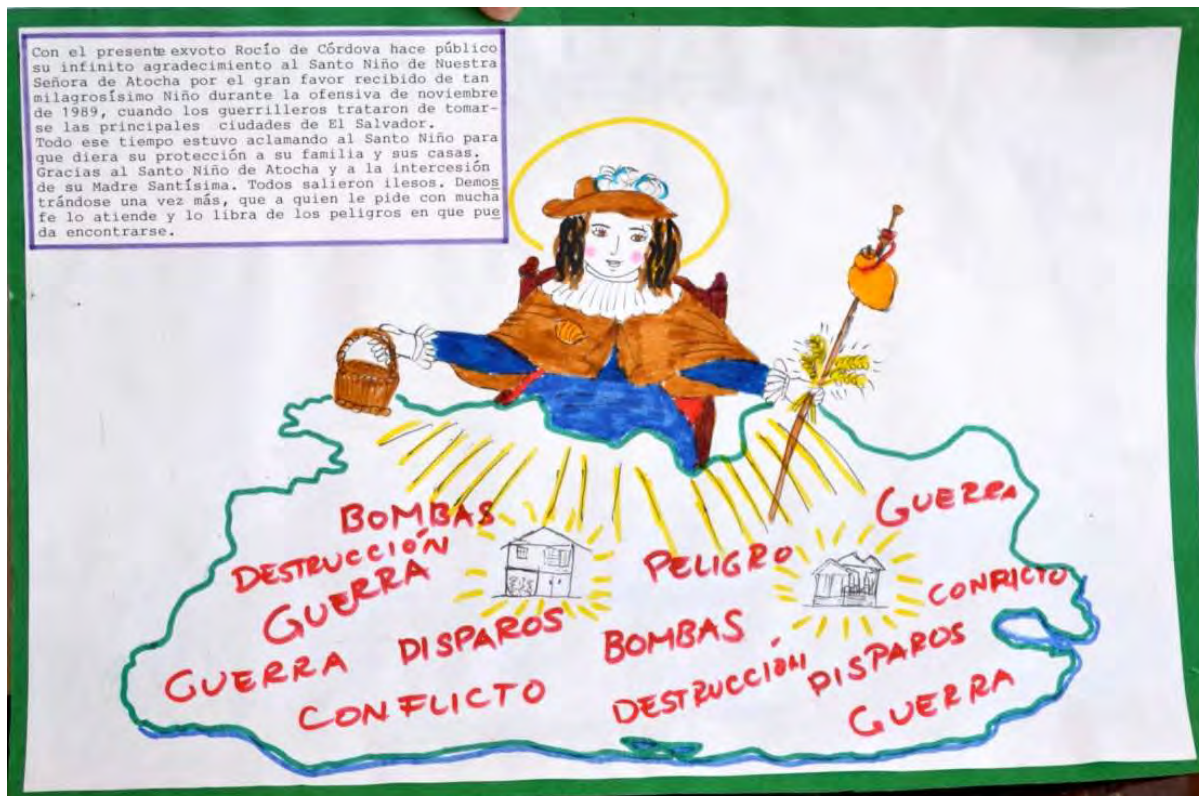 Con el presente exvoto Rocío de Córdova hace público
su infinito agradecimiento al Santo Niño de Nuestra
Señora de Atocha por el gran favor recibido de tan
milagrosísimo Niño durante la ofensiva de noviembre
de 1989, cuando los guerrilleros trataron de tomar-
se las principales ciudades de El Salvador.
Todo ese tiempo estuvo aclamando al Santo Niño para
que diera su protección a su familia y sus casas.
Gracias al Santo Niño de Atocha y a la intercesión
de su Madre Santísima. Todos salieron ilesos. Demos
trándose una vez más, que a quien le pide con mucha
fe lo atiende y lo libra de los peligros en que pue
da encontrarse.
GUERRA
BOMBAS
DESTRUCCIÓN
PELIGRO
GUERRA
CONFLICTO
DISPAROS
BOMBAS
GUERRA
DISPAROS
CONFLICTO
DESTRUCCIÓN
GUERRA